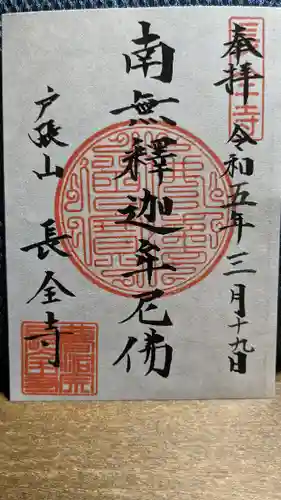 奉拝
令和五年三月十九日
南無釋迦牟尼佛
戸張山
長全寺